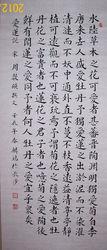 水陸草木之花可愛者甚蕃晉陶淵明獨愛菊自李
唐來世人盛愛牡丹予獨愛蓮之出淤泥而不染濯
清漣而不妖中通外直不蔓不枝香遠益清亭亭
淨植可遠觀而不可褻玩焉予謂菊花之隱逸者也牡
丹花之富貴者也蓮花之君子者也噫菊之愛陶後
鮮有聞蓮之愛同予者何人牡丹之愛宜乎眾矣
愛蓮說 周敦頤
2012